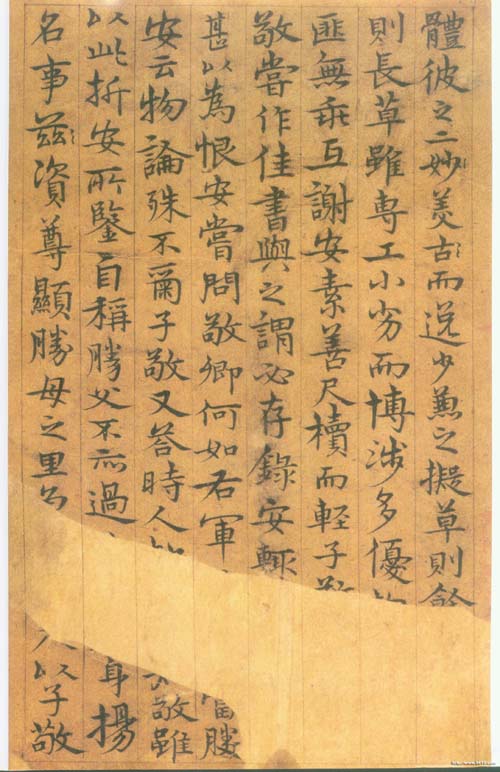 體彼之二妙美古而逸少兼之擬草則餘
則長草雖專工小劣而博涉多優
匪無乖互謝安素善尺牘而輕子敬
敬嘗作佳書與之謂必存錄安輒
甚以為恨安嘗問敬卿何如右軍當勝
安云物論殊不爾子敬又答時人敬雖
以此折安所鑒自稱勝父不亦過身揚
名事茲資尊顯勝母之里以子敬